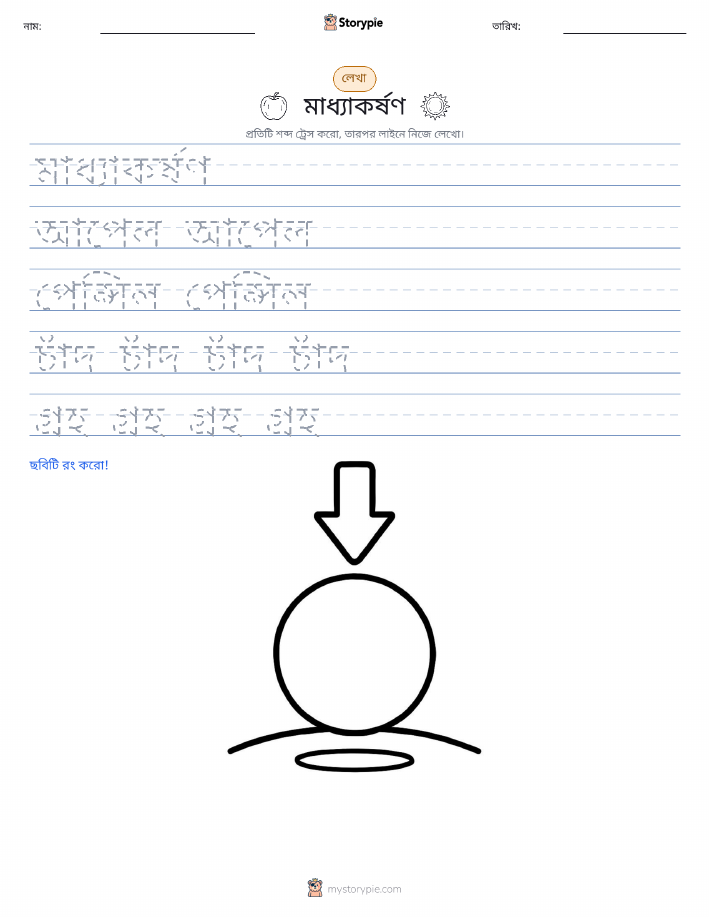 নাম:
Storypie
তারিখ:
লেখা
মাধ্যাকর্ষণ
প্রতিটি শব্দ ট্রেস করো, তারপর লাইনে নিজে লেখো।
মাধ্যাকর্ষণ
আপেল আপেল
পেন্সিল পেন্সিল
চাঁদ চাঁদ চাঁদ চাঁদ
গ্রহ গ্রহ গ্রহ গ্রহ
ছবিটি রং করো!
mystorypie.com